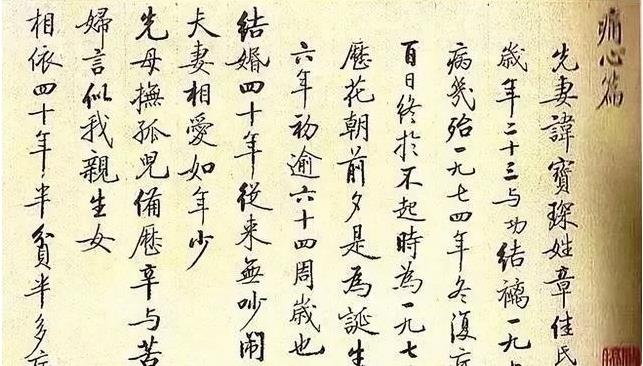 痛心篇
先妻諱寶琛姓章佳氏
歲年二十三与功结褵一九七
病幾殆一九七四年冬復病
百日终於不起時為一九七
歷花朝前夕是為誕生
六年初逾六十四周嵗也
结婚四十年從来無吵闹
夫妻相愛如年少
先母撫孤児備歷辛与苦
婦言似我親生女
相依四十年半貧半多病